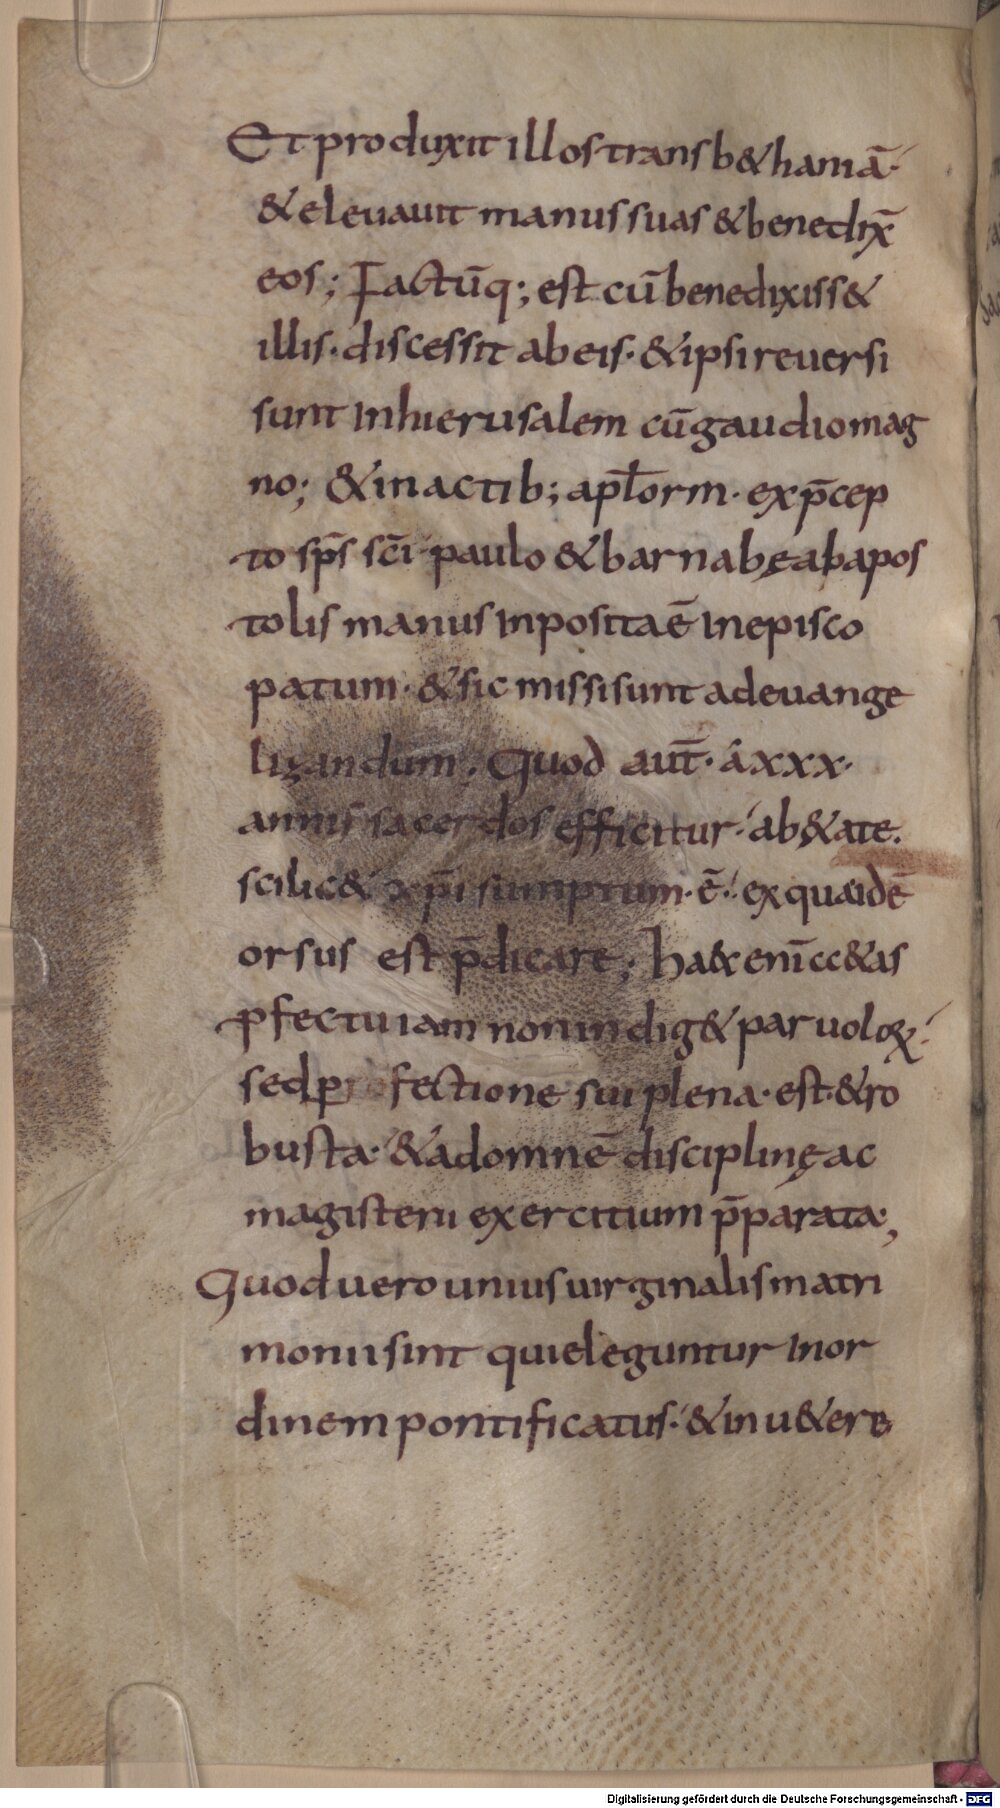 Et produxit illos trans b&haniā·
& eleuauit manus suas & benedix̄
eos; Factūq; est cū benedixiss&
illis· discessit ab eis· & ipsi reuersi
sunt in hierusalem cū gaudio mag
no; & in actib; apl̄orm· ex p̄cep
to sp̄s sc̄i paulo & barnabę ab apos
tolis manus inposita ē in episco
patum· & sic missi sunt ad euange
lizandum· Quod aut̄· a xxx·
annis sacerdos efficitur· ab &ate·
scilic& xp̄i sumptum· ē· ex qua idē
orsus est p̄dicare; haec enī c&as
ꝑfectu iam non indig& paruoloꝝ·
sed ꝑ fectione sui plena· est· & ro
busta· & ad omnē disciplinę ac
magisterii exercitium p̄parata;
Quod uero unius uirginalis matri
monii sint qui eleguntur in or
dinem pontificatus· & in u&ere
Digitalisierung gefördert durch die Deutsche Forschungsgemeinschaft - DFG